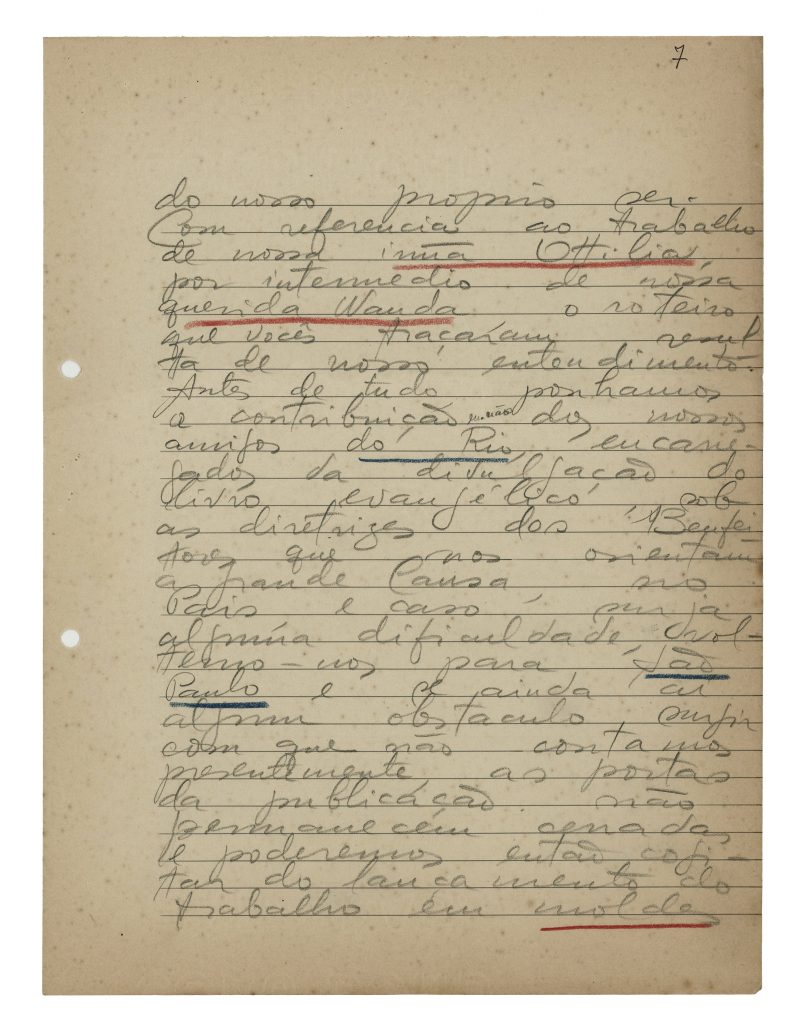 7
do nosso proprio ser.
Com referencia ao trabalho
de nossa irmã Ottilia,
por intermedio de nossa
querida Wanda o roteiro
que vocês traçaram resul
ta de nosso entendimento.
Antes de tudo ponhamos
a contribuição dos nossos
amigos do Rio, encarre-
gados da divulgação do
livro evangélico, sob
as diretrizes dos Benfei
tores que nos orientam
a grande Causa no
Pais e caso surja
alguma dificuldade, vol-
temo-nos para São
Paulo e se ainda ai
algum obstaculo surgir
com que não contamos
presentemente, as portas
da publicação não
permanecem cerradas
e poderemos então cogi-
tar do lançamento do
trabalho em moldes